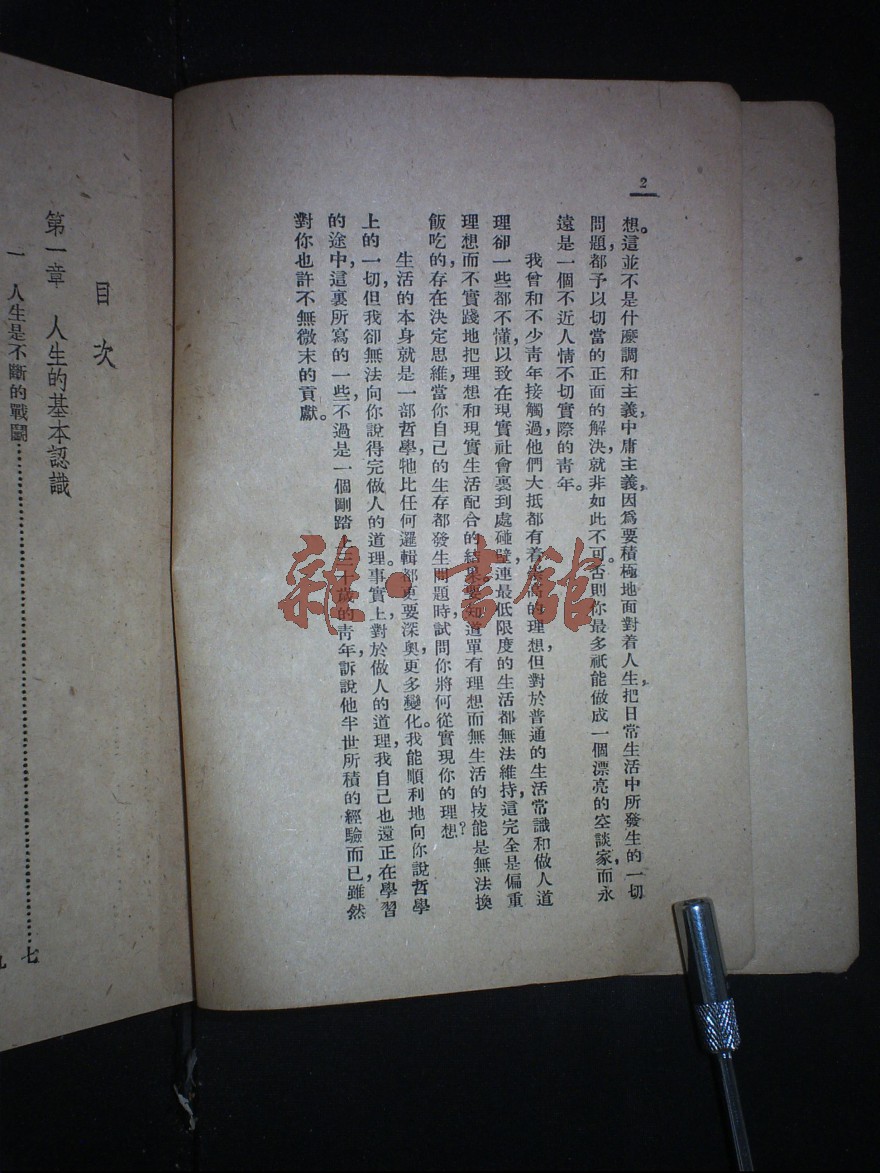 2
想。這並不是什麼調和主義，中庸主義，因爲要積極地面對着人生，把日常生活中所發生的一切
問題，都予以切當的正面的解決，就非如此不可。否則你最多祇能做成一個漂亮的空談家，而永
遠是一個不近人情不切實際的靑年。
我曾和不少靑年接觸過，他們大抵都有着崇高的理想，但對於普通的生活常識和做人道
理卻一些都不懂，以致在現實社會裏到處碰壁，連最低限度的生活都無法維持，這完全是偏重
理想而不實踐地把理想和現實生活配合的結果。要知道單有理想而無生活的技能是無法換
飯吃的，存在決定思維，當你自己的生存都發生問題時，試問你將何從實現你的理想？
生活的本身就是一部哲學，牠比任何邏輯都更要深奧，更多變化。我能順利地向你說哲學
上的一切，但我卻無法向你說得完做人的道理。事實上，對於做人的道理，我自己也還正在學習
的途中，這裏所寫的一些，不過是一個剛踏上三十歲的靑年，訴說他半世所積的經驗而已，雖然
對你也許不無微末的貢獻。
目次
第一章 人生的基本認識
一 人生是不斷的戰鬭……………………七
九
雜·書館